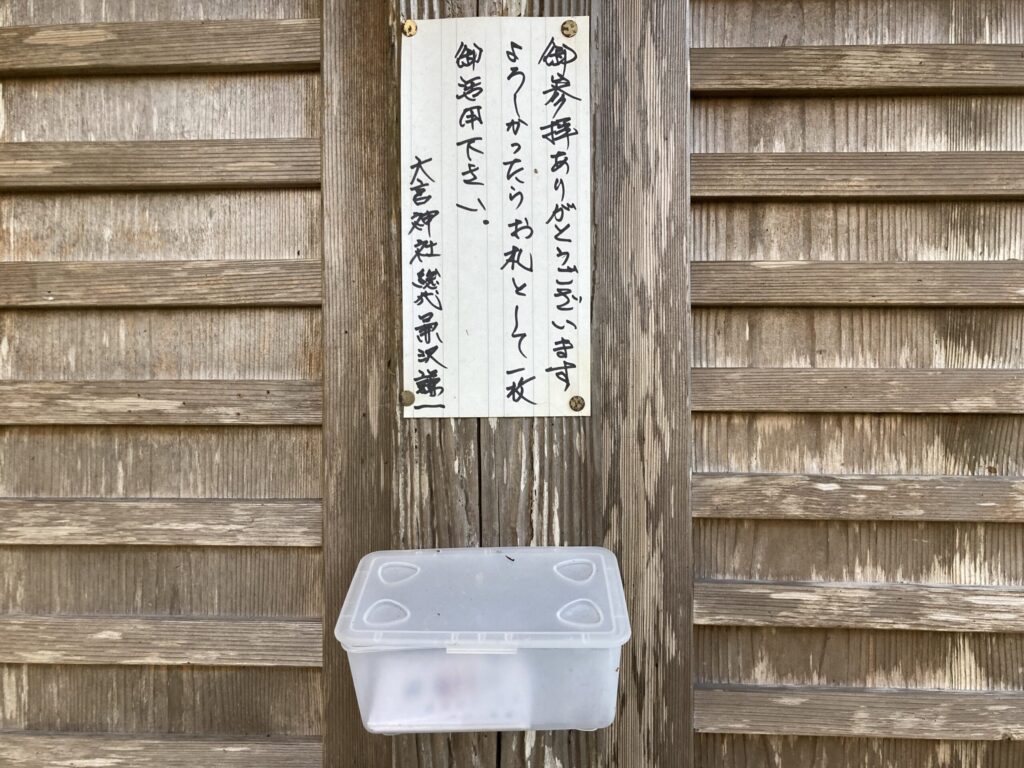 御参拝ありがとうございます
よろしかったらお札として一枚
御活用下さい。
大宮神社総代 沢謙一